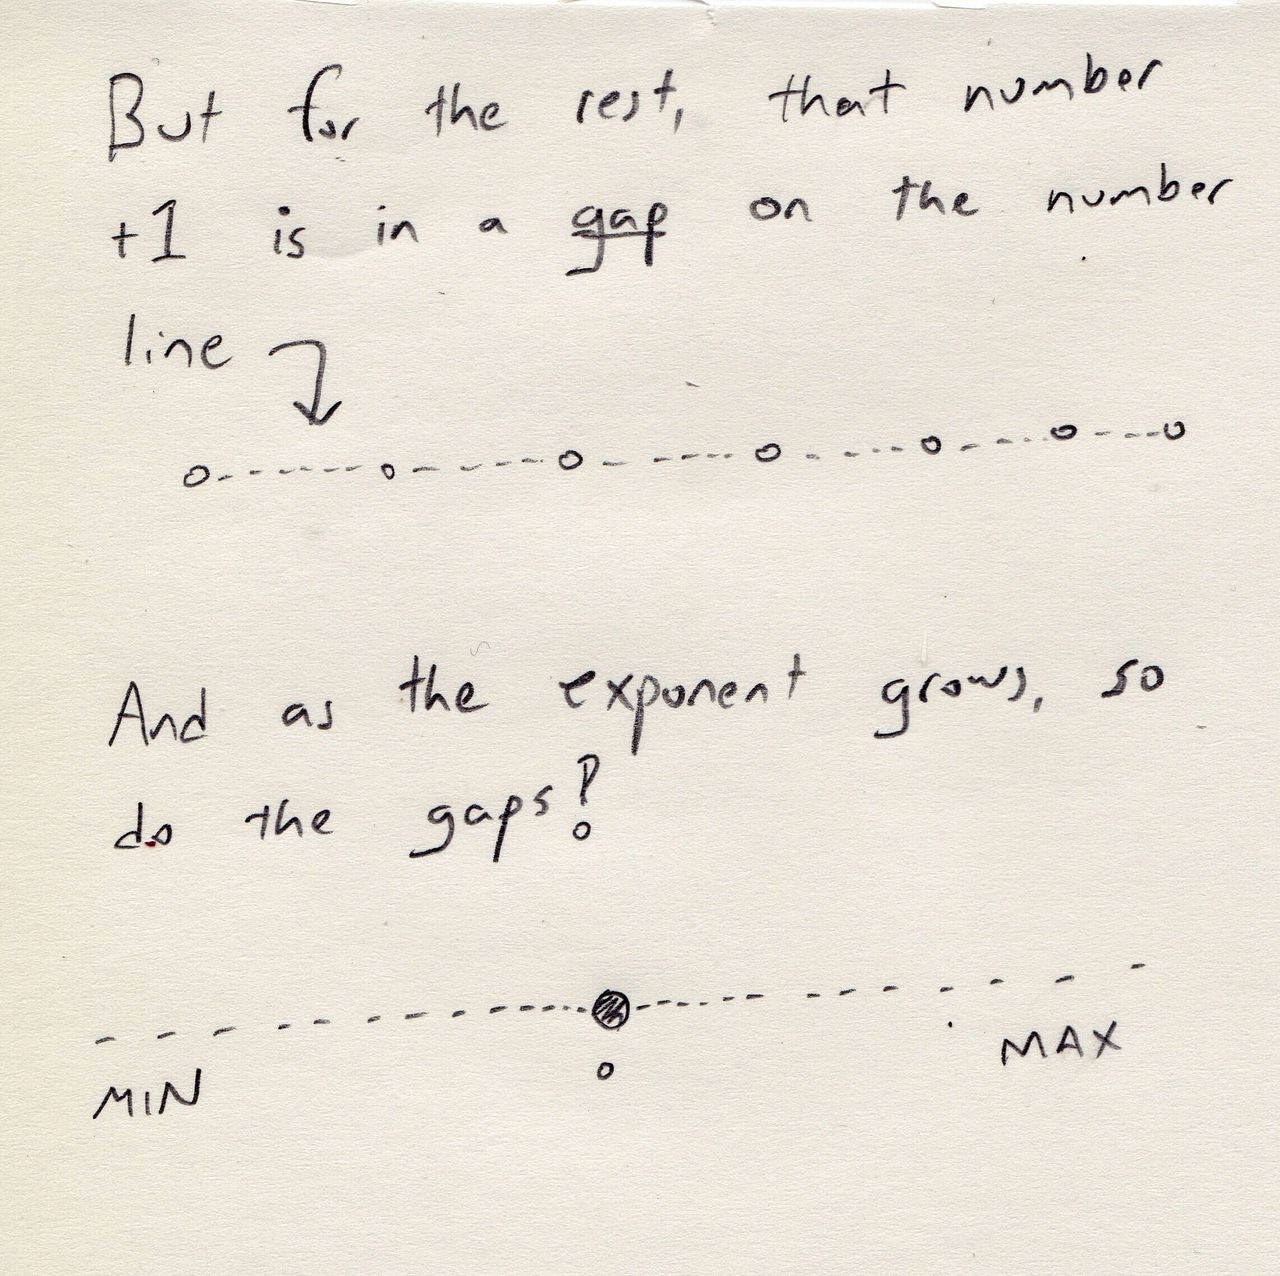 But for the rest, that number
+1 is in a gap on the number
line
And as the exponent grows, so
do the gaps!
MIN
0
MAX